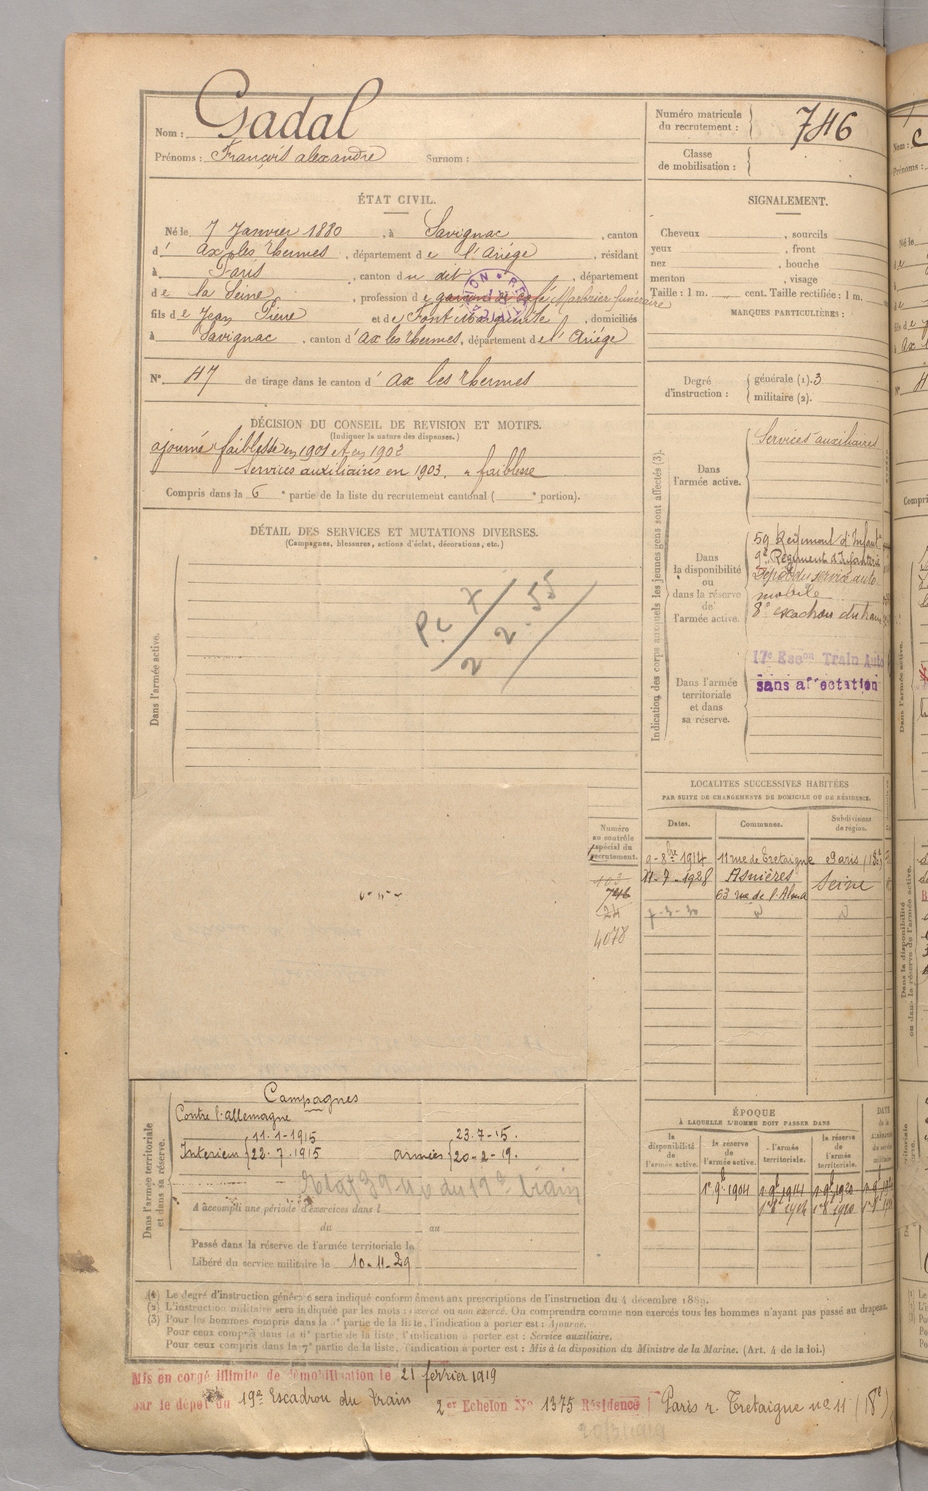 Nom : Gadal
Prénoms : François alexandre Surnom :
Numéro matricule du recrutement : 746
Classe de mobilisation :
ÉTAT CIVIL.
Né le 7 Janvier 1880, à Savignac, canton
d' Ax les Thermes, département de l'Ariège, résidant
à Paris, canton du dit, département
de la Seine, profession de garçon de café Marbrier funéraire
fils de Jean Pierre et de Font Marguerite, domiciliés
à Savignac, canton d'Ax les Thermes, département de l'Ariège
N° 47 de tirage dans le canton d' Ax les Thermes
SIGNALEMENT.
Cheveux , sourcils
yeux , front
nez , bouche
menton , visage
Taille : 1 m. cent. Taille rectifiée : 1 m.
MARQUES PARTICULIÈRES :
Degré d'instruction : générale (1). 3
militaire (2).
DÉCISION DU CONSEIL DE REVISION ET MOTIFS.
(Indiquer la nature des dispenses.)
ajourné "faiblesse en 1901 et en 1902
Services auxiliaires en 1903. " faiblesse
Compris dans la 6e partie de la liste du recrutement cantonal ( e portion).
DÉTAIL DES SERVICES ET MUTATIONS DIVERSES.
(Campagnes, blessures, actions d'éclat, décorations, etc.)
Dans l'armée active.
Indication des corps auxquels les jeunes gens sont affectés (3).
Dans l'armée active.
Services auxiliaires
Dans la disponibilité ou dans la réserve de l'armée active.
59 Régiment d'Infanterie
9e Régiment d'Infanterie
Dépôt du service auto
mobile
8e escadron du train
Dans l'armée territoriale et dans sa réserve.
17e Escon Train Auto
sans affectation
LOCALITES SUCCESSIVES HABITÉES
PAR SUITE DE CHANGEMENTS DE DOMICILE OU DE RÉSIDENCE.
Dates. Communes. Subdivisions de région.
9-8bre 1914 11 rue de Tretaigne Paris (18e)
11-7-1928 Asnières Seine
63 rue de l'Alma
7-3-30
Numéro au contrôle spécial du recrutement.
103
746
24
4078
Campagnes
Contre l'allemagne
Interieur 11.1-1915 23.7.1915 armées 23.7-15. 20-2-19.
Dans l'armée territoriale et dans sa réserve.
A accompli une période d'exercices dans l
du au
Passé dans la réserve de l'armée territoriale le
Libéré du service militaire le 10-11-29
ÉPOQUE
À LAQUELLE L'HOMME DOIT PASSER DANS
la disponibilité de l'armée active. la réserve de l'armée active. l'armée territoriale. la réserve de l'armée territoriale.
1er 9bre 1904 1er 9bre 1914 1er 9bre 1920
(1) Le degré d'instruction générale sera indiqué conformément aux prescriptions de l'instruction du 4 décembre 1889.
(2) L'instruction militaire sera indiquée par les mots : exercé ou non exercé. On comprendra comme non exercés tous les hommes n'ayant pas passé au drapeau.
(3) Pour les hommes compris dans la 5e partie de la liste, l'indication à porter est : Ajourné.
Pour ceux compris dans la 6e partie de la liste, l'indication à porter est : Service auxiliaire.
Pour ceux compris dans la 7e partie de la liste, l'indication à porter est : Mis à la disposition du Ministre de la Marine. (Art. 4 de la loi.)
Mis en congé illimité de démobilisation le 21 février 1919
par le dépôt du 19e Escadron du Train 2er Echelon N° 1375 Résidence Paris r. Tretaigne no 11 (18e)